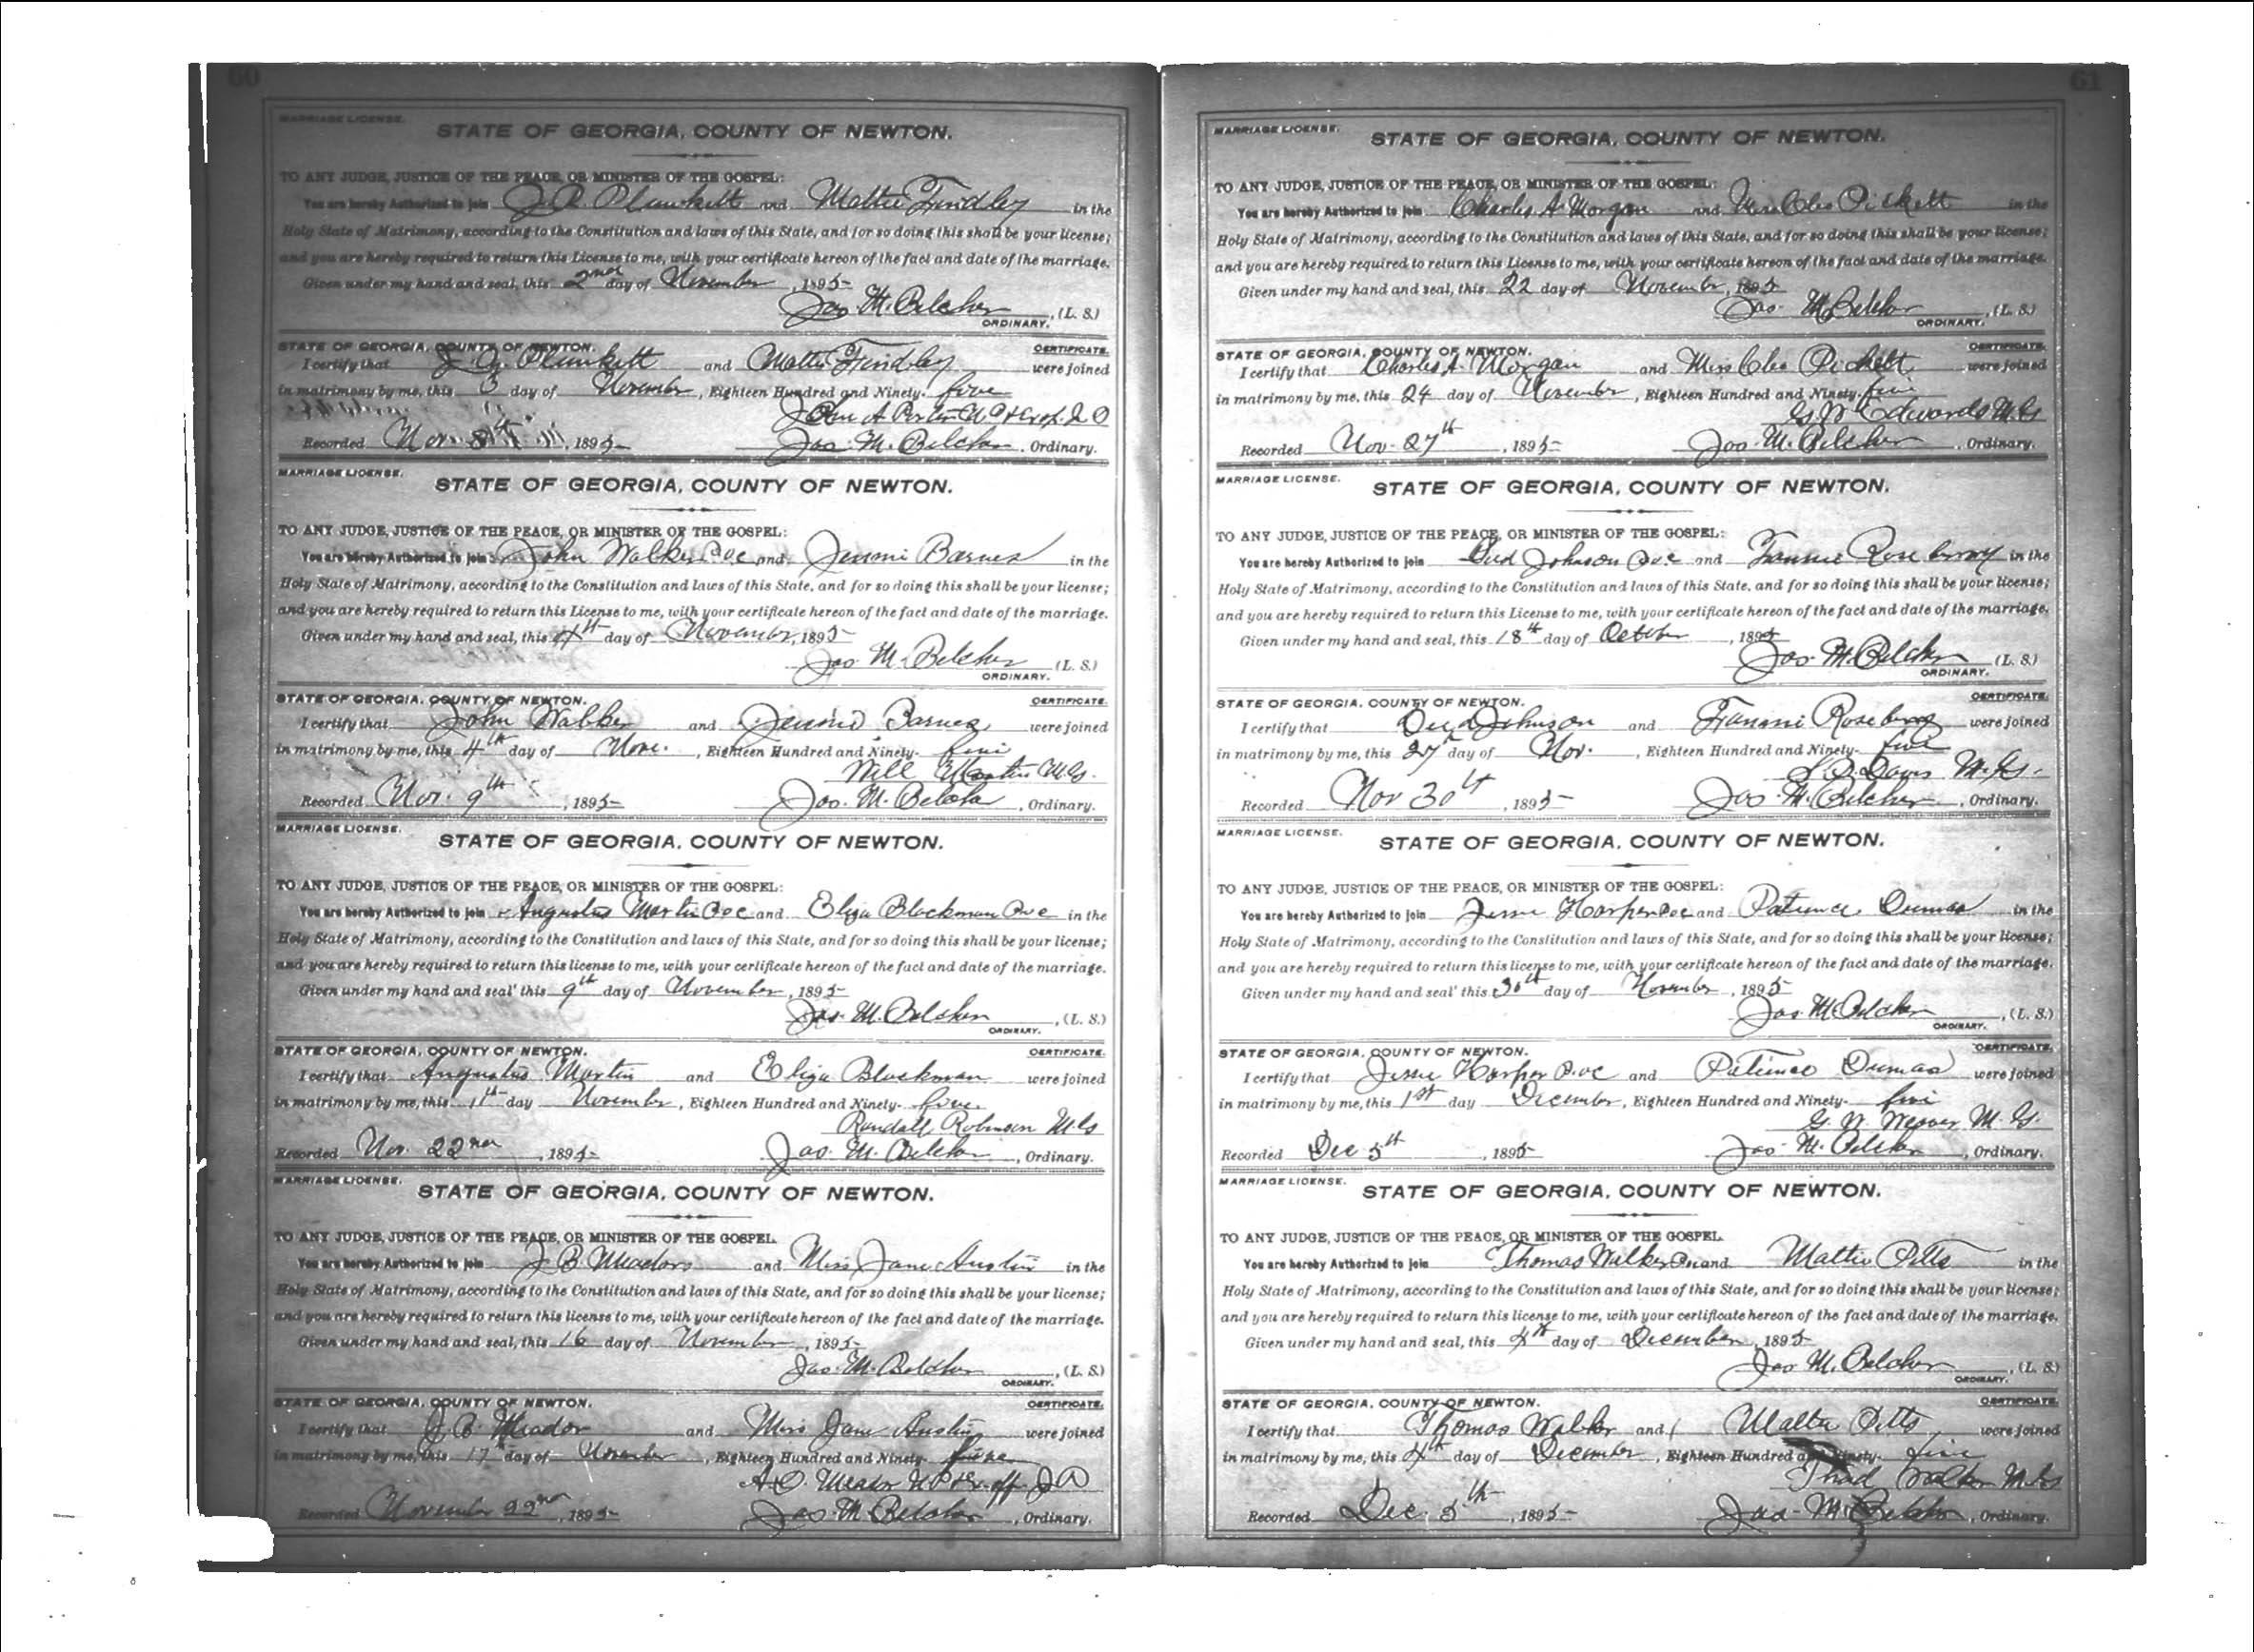 60
MARRIAGE LICENSE.
STATE OF GEORGIA, COUNTY OF NEWTON.
TO ANY JUDGE, JUSTICE OF THE PEACE, OR MINISTER OF THE GOSPEL:
You are hereby Authorized to join J. A. Plunkett and Mattie Findley in the
Holy State of Matrimony, according to the Constitution and laws of this State, and for so doing this shall be your license;
and you are hereby required to return this License to me, with your certificate hereon of the fact and date of the marriage.
Given under my hand and seal, this 2nd day of November, 1895
Jas. M. Belcher, (L. S.)
ORDINARY.
STATE OF GEORGIA, COUNTY OF NEWTON. CERTIFICATE.
I certify that Plunkett and Mattie Findley were joined
in matrimony by me, this 3 day of November, Eighteen Hundred and Ninety-five
John A
Recorded Nov. 8th, 1895 Jas. M. Belcher, Ordinary.
MARRIAGE LICENSE.
STATE OF GEORGIA, COUNTY OF NEWTON.
TO ANY JUDGE, JUSTICE OF THE PEACE, OR MINISTER OF THE GOSPEL:
You are hereby Authorized to join John Walker and Jennie Barnes in the
Holy State of Matrimony, according to the Constitution and laws of this State, and for so doing this shall be your license;
and you are hereby required to return this License to me, with your certificate hereon of the fact and date of the marriage.
Given under my hand and seal, this 4th day of November, 1895
Jas. M. Belcher (L. S.)
ORDINARY.
STATE OF GEORGIA, COUNTY OF NEWTON. CERTIFICATE.
I certify that John Walker and Jennie Barnes were joined
in matrimony by me, this 4th day of Nov., Eighteen Hundred and Ninety-five
Will Martin M.G.
Recorded Nov. 9th, 1895 Jas. M. Belcher, Ordinary.
MARRIAGE LICENSE.
STATE OF GEORGIA, COUNTY OF NEWTON.
TO ANY JUDGE, JUSTICE OF THE PEACE, OR MINISTER OF THE GOSPEL:
You are hereby Authorized to join Augustus Martin and Eliza Blackman in the
Holy State of Matrimony, according to the Constitution and laws of this State, and for so doing this shall be your license;
and you are hereby required to return this license to me, with your certificate hereon of the fact and date of the marriage.
Given under my hand and seal' this 9th day of November, 1895
Jas. M. Belcher, (L. S.)
ORDINARY.
STATE OF GEORGIA, COUNTY OF NEWTON. CERTIFICATE.
I certify that Augustus Martin and Eliza Blackman were joined
in matrimony by me, this day November, Eighteen Hundred and Ninety-five
Randall Robinson M.G.
Recorded Nov. 22nd, 1895 Jas. M. Belcher, Ordinary.
MARRIAGE LICENSE.
STATE OF GEORGIA, COUNTY OF NEWTON.
TO ANY JUDGE, JUSTICE OF THE PEACE, OR MINISTER OF THE GOSPEL.
You are hereby Authorized to join J. B. Meadors and Miss Jane Austin in the
Holy State of Matrimony, according to the Constitution and laws of this State, and for so doing this shall be your license;
and you are hereby required to return this license to me, with your certificate hereon of the fact and date of the marriage.
Given under my hand and seal, this 16 day of November, 1895
Jas. M. Belcher, (L. S.)
ORDINARY.
STATE OF GEORGIA, COUNTY OF NEWTON. CERTIFICATE.
I certify that J. B. Meador and Miss Jane Austin were joined
in matrimony by me, this 17 day of November, Eighteen Hundred and Ninety-five
Meador
Recorded November 22nd, 1895 Jas. M. Belcher, Ordinary.
61
MARRIAGE LICENSE.
STATE OF GEORGIA, COUNTY OF NEWTON.
TO ANY JUDGE, JUSTICE OF THE PEACE, OR MINISTER OF THE GOSPEL:
You are hereby Authorized to join Charles A Morgan and Miss Cleo Pickett in the
Holy State of Matrimony, according to the Constitution and laws of this State, and for so doing this shall be your license;
and you are hereby required to return this License to me, with your certificate hereon of the fact and date of the marriage.
Given under my hand and seal, this 22 day of November, 1895
Jas. M. Belcher, (L. S.)
ORDINARY.
STATE OF GEORGIA, COUNTY OF NEWTON. CERTIFICATE.
I certify that Charles A. Morgan and Miss Cleo Pickett were joined
in matrimony by me, this 24 day of November, Eighteen Hundred and Ninety-five
G. W. Edwards M.G.
Recorded Nov. 27th, 1895 Jas. M. Belcher, Ordinary.
MARRIAGE LICENSE.
STATE OF GEORGIA, COUNTY OF NEWTON.
TO ANY JUDGE, JUSTICE OF THE PEACE, OR MINISTER OF THE GOSPEL:
You are hereby Authorized to join Johnson and Fannie Roseberry in the
Holy State of Matrimony, according to the Constitution and laws of this State, and for so doing this shall be your license;
and you are hereby required to return this License to me, with your certificate hereon of the fact and date of the marriage.
Given under my hand and seal, this 18th day of October, 1895
Jas. M. Belcher (L. S.)
ORDINARY.
STATE OF GEORGIA, COUNTY OF NEWTON. CERTIFICATE.
I certify that Johnson and Fannie Roseberry were joined
in matrimony by me, this 27 day of Nov., Eighteen Hundred and Ninety-five
Davis M.G.
Recorded Nov 30th, 1895 Jas. M. Belcher, Ordinary.
MARRIAGE LICENSE.
STATE OF GEORGIA, COUNTY OF NEWTON.
TO ANY JUDGE, JUSTICE OF THE PEACE, OR MINISTER OF THE GOSPEL:
You are hereby Authorized to join Jesse Harper and Patience Dumas in the
Holy State of Matrimony, according to the Constitution and laws of this State, and for so doing this shall be your license;
and you are hereby required to return this license to me, with your certificate hereon of the fact and date of the marriage.
Given under my hand and seal' this 30th day of November, 1895
Jas. M. Belcher, (L. S.)
ORDINARY.
STATE OF GEORGIA, COUNTY OF NEWTON. CERTIFICATE.
I certify that Jesse Harper and Patience Dumas were joined
in matrimony by me, this 1st day December, Eighteen Hundred and Ninety-five
G. W. Weaver M. G.
Recorded Dec 5th, 1895 Jas. M. Belcher, Ordinary.
MARRIAGE LICENSE.
STATE OF GEORGIA, COUNTY OF NEWTON.
TO ANY JUDGE, JUSTICE OF THE PEACE, OR MINISTER OF THE GOSPEL.
You are hereby Authorized to join Thomas Walker and Mattie Pitts in the
Holy State of Matrimony, according to the Constitution and laws of this State, and for so doing this shall be your license;
and you are hereby required to return this license to me, with your certificate hereon of the fact and date of the marriage.
Given under my hand and seal, this 4th day of December, 1895
Jas. M. Belcher, (L. S.)
ORDINARY.
STATE OF GEORGIA, COUNTY OF NEWTON. CERTIFICATE.
I certify that Thomas Walker and Mattie Pitts were joined
in matrimony by me, this 4th day of December, Eighteen Hundred and Ninety-five
Thad Walker M.G.
Recorded Dec. 5th, 1895 Jas. M. Belcher, Ordinary.